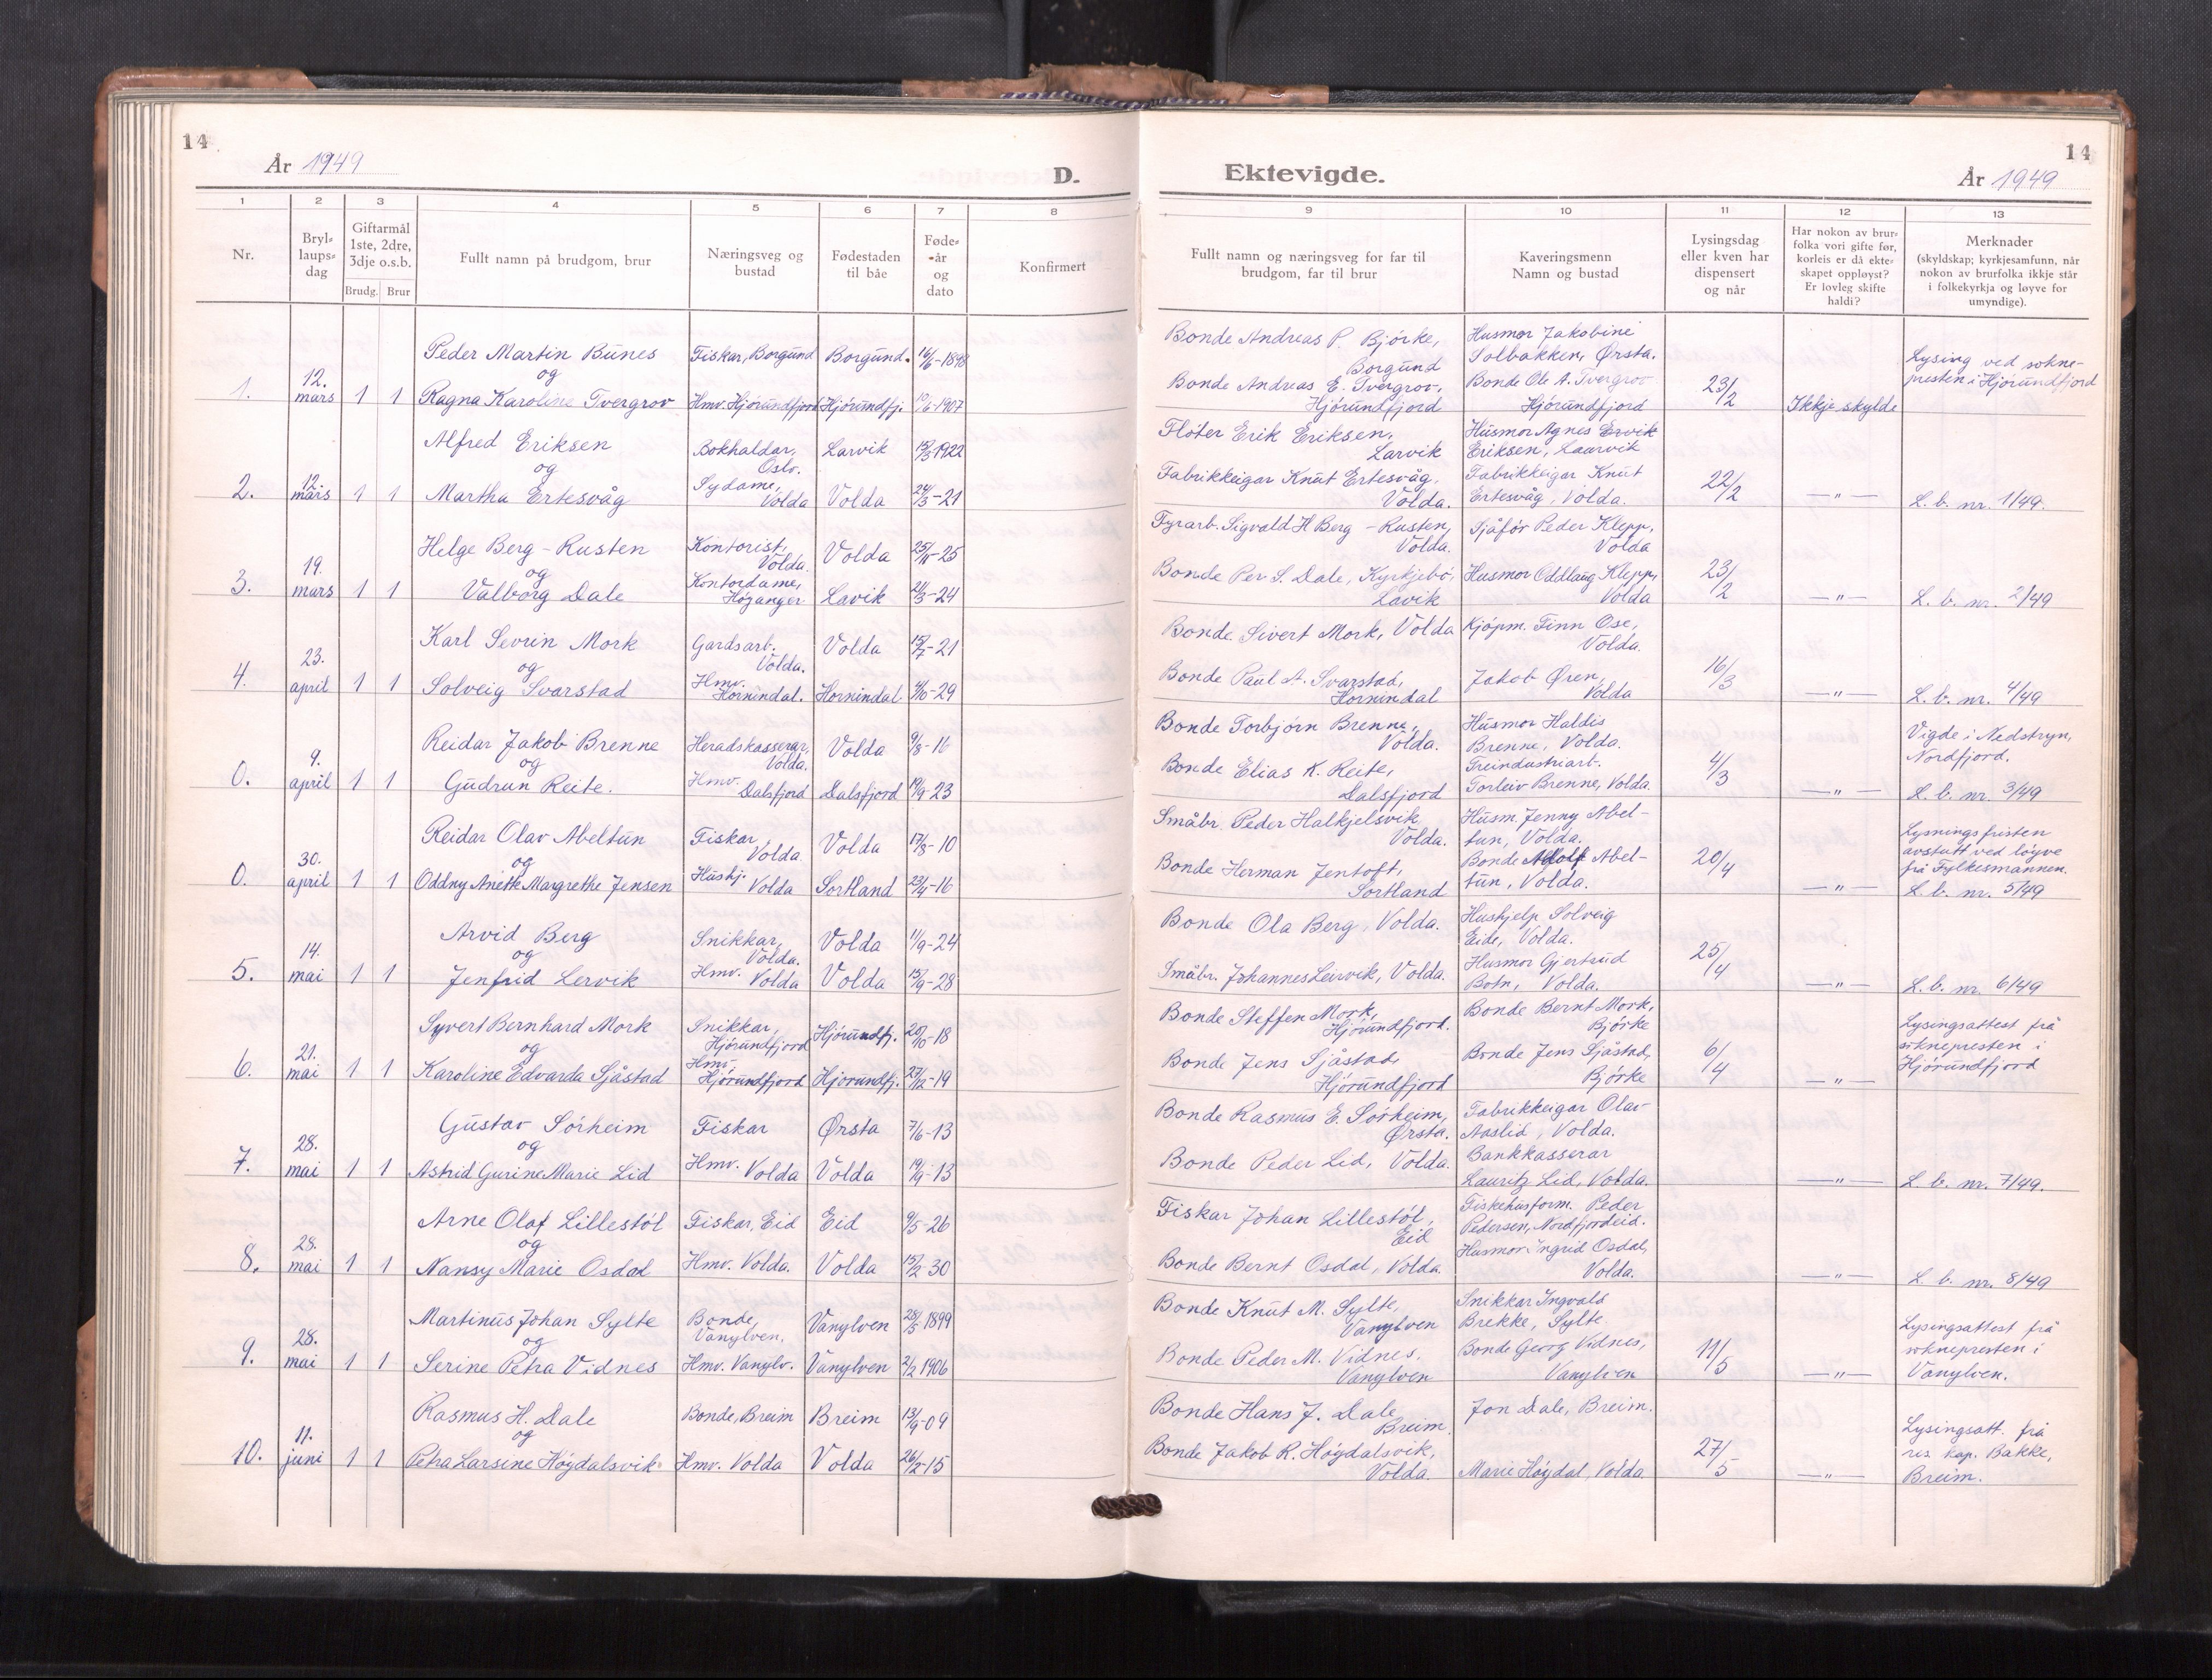 14
År 1949
D.
Ektevigde.
År 1949
14
1 2 3 4 5 6 7 8 9 10 11 12 13
Nr.
Bryl=
laups=
dag
Giftarmål
1ste, 2dre,
3dje o.s.b.
Brudg. Brur
Fullt namn på brudgom, brur
Næringsveg og
bustad
Fødestaden
til båe
Føde=
-år
og
dato
Konfirmert
Fullt namn og næringsveg for far til
brudgom, far til brur
Kaveringsmenn
Namn og bustad
Lysingsdag
eller kven har
dispensert
og når
Har nokon av brur=
folka vori gifte før,
korleis er då ekte=
skapet oppløyst?
Er lovleg skifte
haldi?
Merknader
(skyldskap; kyrkjesamfunn, når
nokon av brurfolka ikkje står
i folkekyrkja og løyve for
umyndige).
1.
12.
mars
1 1
Peder Martin Bunes
og
Ragna Karoline Tvergrov
Fiskar, Borgund
Hmv. Hjörundfjord
Borgund.
Hjörundfj.
16/6-1898
10/6-1907
Bonde Andreas P. Bjórke,
Borgund
Bonde Andreas E. Tvergrov,
Hjörundfjord
Husmor Jakobine
Solbakken, Ørsta.
Bonde Ole A. Tvergrov
Hjörundfjord
23/2
Ikkje skylde
Lysing ved sokne-
presten i Hjörundfjord
2.
12.
mars
1 1
Alfred Eriksen
og
Martha Ertesvåg
Bokhaldar,
Oslo.
Sydame,
Volda
Larvik
Volda
15/3 1922
24/3-21
Fløter Erik Eriksen,
Larvik
Fabrikkeigar Knut Ertesvåg,
Volda.
Husmor Agnes Ervik
Eriksen, Laurvik
Fabrikkeigar Knut
Ertesvåg, Volda.
22/2
-"-
L. b. nr. 1/49.
3.
19.
mars
1 1
Helge Berg-Rusten
og
Valborg Dale
Kontorist,
Volda.
Kontordame,
Høyanger
Volda
Lavik
25/11-25
21/3-24
Fyrarb. Sigvald H Berg-Rusten,
Volda.
Bonde Per S. Dale, Kyrkjebö,
Lavik
Sjåfør Peder Klepp,
Volda
Husmor Oddlaug Klepp,
Volda
23/2
-"-
L. b. nr. 2/49
4.
23.
april
1 1
Karl Sevrin Mork
og
Solveig Svarstad
Gardsarb.
Volda.
Hmv.
Hornindal.
Volda
Hornindal
15/7-21
4/6-29
Bonde Sivert Mork, Volda
Bonde Paul A. Svarstad,
Hornindal
Kjöpm. Finn Ose,
Volda.
Jakob Øren,
Volda
16/3
-"-
L. b. nr. 4/49
0.
9.
april
1 1
Reidar Jakob Brenne
og
Gudrun Reite.
Heradskasserar,
Volda.
Hmv.
Dalsfjord
Volda
Dalsfjord
9/8-16
19/9-23
Bonde Torbjörn Brenne,
Volda.
Bonde Elias K. Reite,
Dalsfjord
Husmor Haldis
Brenne, Volda.
Treindustriarb.
Torleiv Brenne, Volda.
4/3
-"-
Vigde i Nedstryn,
Nordfjord.
L. b. nr. 3/49
0.
30.
april
1 1
Reidar Olav Abeltun
og
Oddny Anette Margrethe Jensen
Fiskar
Volda
Hushj.
Volda
Volda
Sortland
17/8-10
23/4-16
Småbr. Peder Halkjelsvik
Volda.
Bonde Herman Jentoft,
Sortland
Husm. Jenny Abel-
tun, Volda.
Bonde Adolf Abel-
tun, Volda.
20/4
-"-
Lysningsfristen
avstutt ved löyve
frå Fylkesmannen.
L. b. nr. 5/49
5.
14.
mai
1 1
Arvid Berg
og
Jenfrid Lervik
Snikkar,
Volda.
Hmv.
Volda
Volda
Volda
11/9-24
15/9-28
Bonde Ola Berg, Volda.
Småbr. Johannes Leirvik, Volda.
Hushjelp Solveig
Eide, Volda.
Husmor Gjertrud
Botn, Volda.
25/4
-"-
L. b. nr. 6/49
6.
21.
mai
1 1
Syvert Bernhard Mork
og
Karoline Edvarda Sjåstad
Snikkar,
Hjörundfjord
Hmv.
Hjörundfjord
Hjörundfj.
Hjorundfj.
20/10-18
27/12-19
Bonde Steffen Mork,
Hjörundfjord.
Bonde Jens Sjåstad,
Hjörundfjord
Bonde Bernt Mork,
Bjórke
Bonde Jens Sjåstad,
Bjórke
6/4
-"-
Lysingsattest frå
soknepresten i
Hjörundfjord
7.
28.
mai
1 1
Gustav Sórheim
og
Astrid Gurine Marie Lid
Fiskar
Hmv. Volda
Ørsta
Volda
7/6-13
19/9-13
Bonde Rasmus E. Sórheim,
Ørsta.
Bonde Peder Lid, Volda.
Fabrikkeigar Olav
Aaslid, Volda.
Bankkasserar
Lauritz Lid, Volda.
-"-
L. b. nr. 7/49.
8.
28.
mai
1 1
Arne Olaf Lillestól
og
Nansy Marie Osdal
Fiskar, Eid
Hmv. Volda.
Eid
Volda
9/5-26
15/2-30
Fiskar Johan Lillestól,
Eid
Bonde Bernt Osdal, Volda.
Fiskehusform. Peder
Pedersen, Nordfjordeid.
Husmor Ingrid Osdal,
Volda.
-"-
L. b. nr. 8/49
9.
28.
mai
1 1
Martinus Johan Sylte
og
Serine Petra Vidnes
Bonde,
Vanylven.
Hmv. Vanylv.
Vanylven
Vanylven
28/5 1899
2/2 1906
Bonde Knut M. Sylte,
Vanylven
Bonde Peder M. Vidnes,
Vanylven
Snikkar Ingvald
Brekke, Sylte
Bonde Georg Vidnes,
Vanylven
11/5
-"-
Lysingsattest frå
soknepresten i
Vanylven.
10.
11.
juni
1 1
Rasmus H. Dale
og
Petra Larsine Höydalsvik
Bonde, Breim
Hmv. Volda
Breim
Volda
13/9-09
26/2-15
Bonde Hans J. Dale
Breim.
Bonde Jakob R. Höydalsvik,
Volda.
Jon Dale, Breim.
Marie Höydal, Volda
27/5
-"-
Lysingsatt. frå
res. kap. Bakke,
Breim.